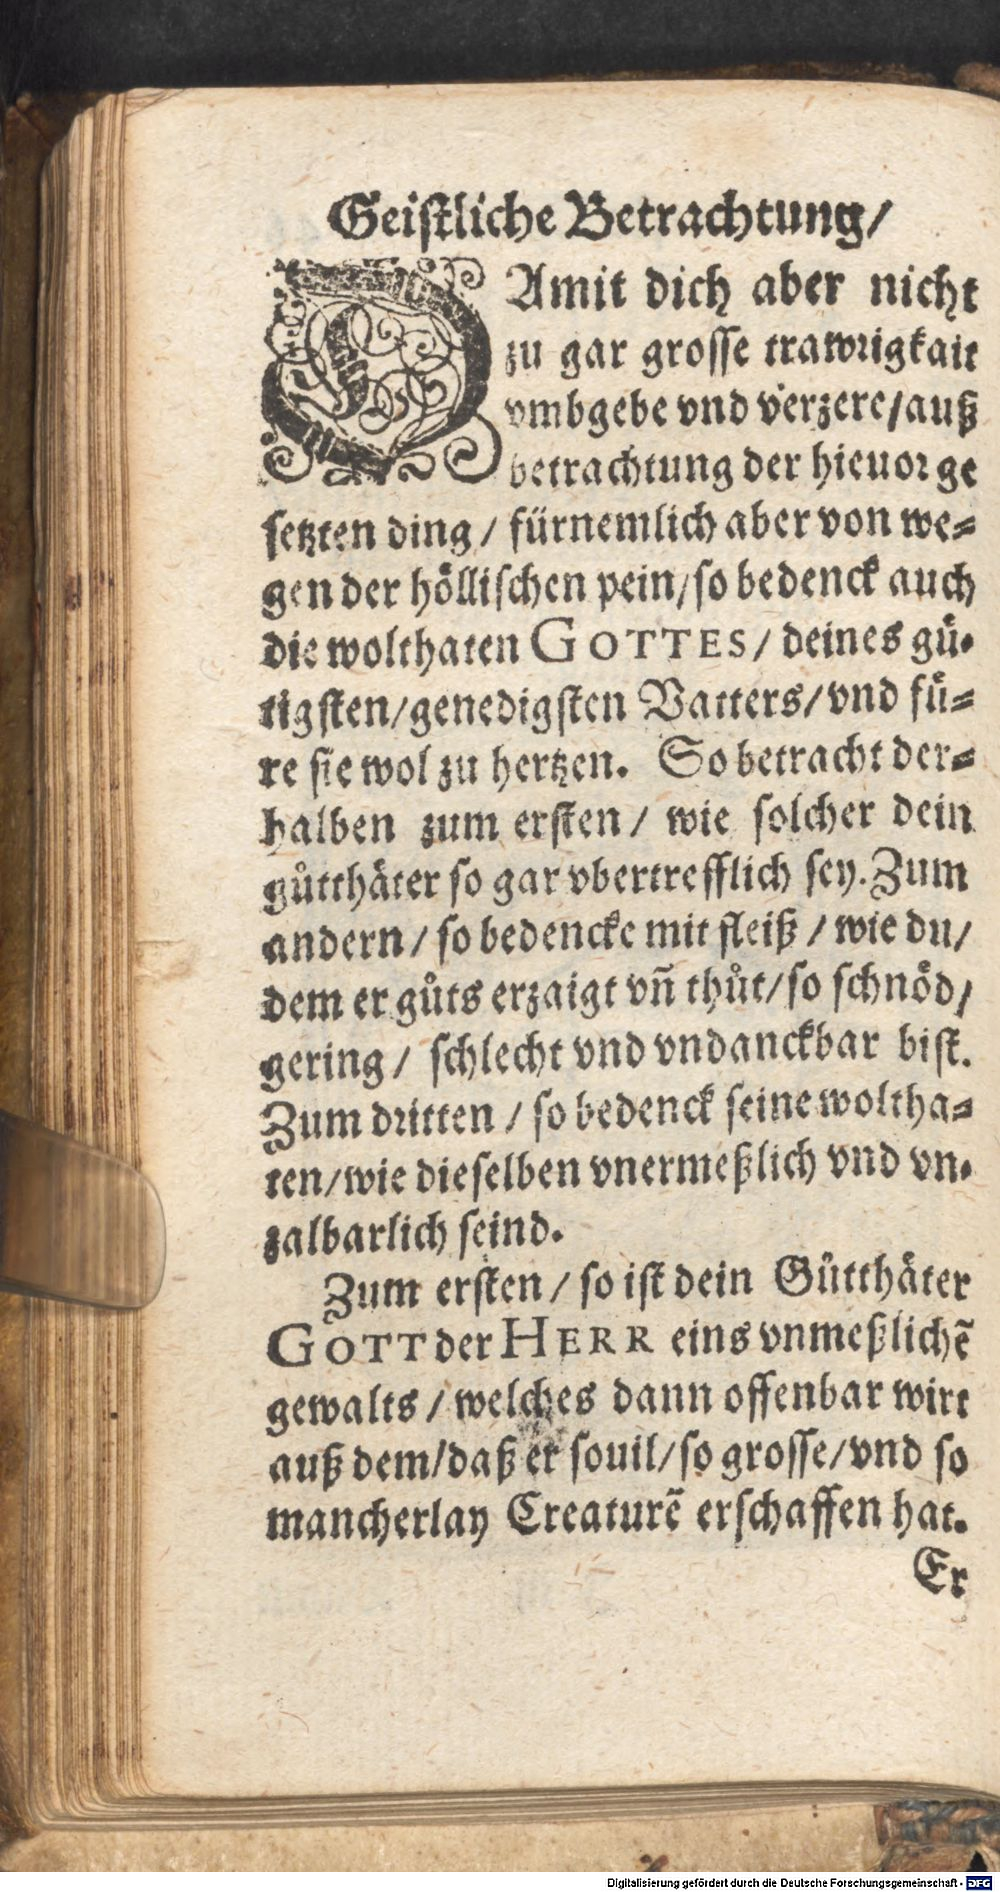 Geistliche Betrachtung/
DAmit dich aber nicht
zu gar grosse trawrigkait
vmbgebe vnd verzere/auß
betrachtung der hieuor ge
setzten ding / fürnemlich aber von we⸗
gen der höllischen pein/so bedenck auch
die wolthaten GOTTES/ deines gü⸗
tigsten/genedigsten Vatters/vnd fü⸗
re sie wol zu hertzen. So betracht der⸗
halben zum ersten / wie solcher dein
gůtthäter so gar vbertrefflich sey. Zum
andern / so bedencke mit fleiß / wie du/
dem er gůts erzaigt vñ thůt/so schnöd/
gering / schlecht vnd vndanckbar bist.
Zum dritten / so bedenck seine woltha⸗
ten/wie dieselben vnermeßlich vnd vn⸗
zalbarlich seind.
Zum ersten / so ist dein Gůtthäter
GOTT der HERR eins vnmeßlichẽ
gewalts / welches dann offenbar wirt
auß dem/daß er souil/so grosse/vnd so
mancherlay Creaturẽ erschaffen hat.
Er
Digitalisierung gefördert durch die Deutsche Forschungsgemeinschaft - DFG